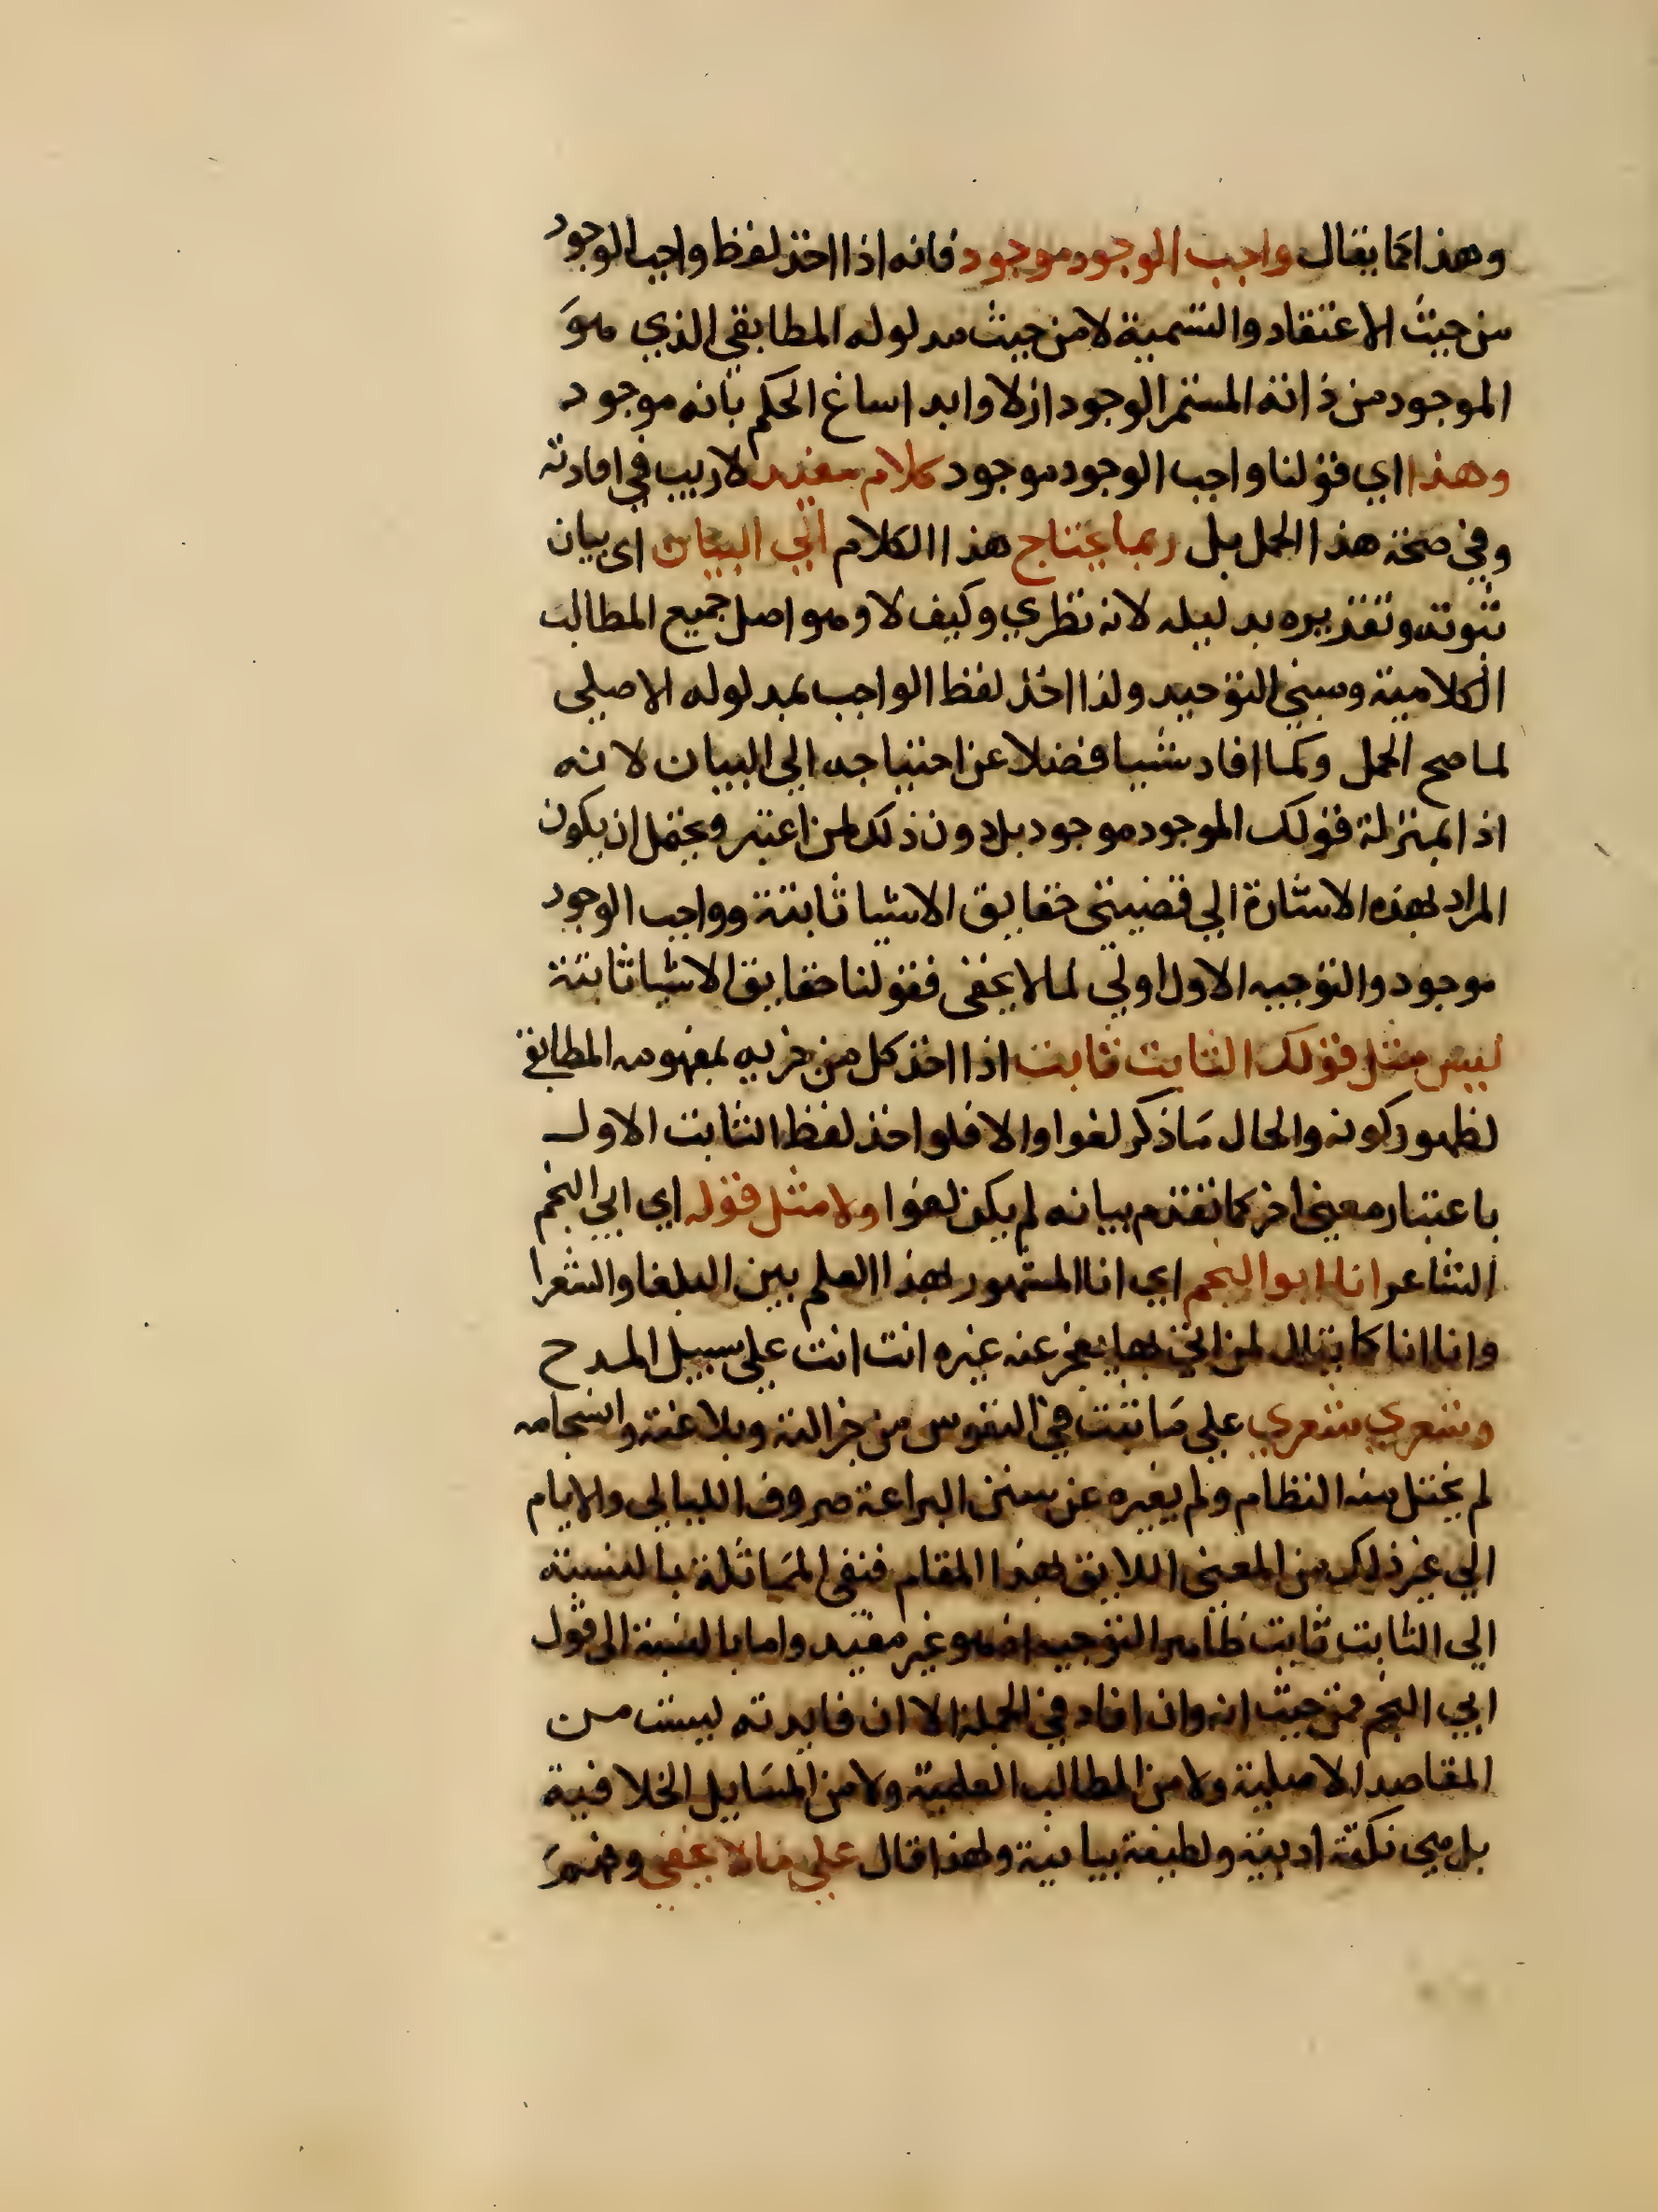 وهذا كما يقال واجب الوجود موجود فانه اذا اخذ لفظ واجب الوجود
من حيث الاعتقاد والتسمية لا من حيث مدلوله المطابقي الذي هو
الموجود من ذاته المستمر الوجود ازلا وابدا ساغ الحكم بانه موجود
وهذا اي قولنا واجب الوجود موجود كلام مفيد لا ريب في افادته
وفي صحة هذا الحمل بل ربما يحتاج هذا الكلام الي البيان اي بيان
ثبوته وتقديره بدليله لانه نظري وكيف لا وهو اصل جميع المطالب
الكلامية ومبني التوحيد ولذا اخذ لفظ الواجب بمدلوله الاصلي
لما صح الحمل وكما افاد شيا فضلا عن احتياجه الي البيان لانه
اذا بمنزلة قولك الموجود موجود بل دون ذلك لمن اعتبر ويحتمل ان يكون
المراد بهذه الاشارة الي قضيتي حقايق الاشيا ثابتة وواجب الوجود
موجود والتوجيه الاول اولي لما لا يخفى فقولنا حقايق الاشيا ثابتة
ليس مثل قولك الثابت ثابت اذا اخذ كل من جزيه بمفهومه المطابقي
لظهور كونه والحال ما ذكر لغوا والا فلو اخذ لفظ الثابت الاول
باعتبار معني اخر كما تقدم بيانه لم يكن لغوا ولا مثل قوله اي ابي النجم
الشاعر انا ابو النجم اي انا المشهور بهذا العلم بين البلغا والشعرا
وانا انا كما يقال لمن اتي بما يعجز عنه غيره انت انت علي سبيل المدح
وشعري شعري علي ما ثبت في النفوس من جزالته وبلاغته وانسجامه
لم يختل منه النظام ولم يغيره عن سنن البراعة صروف الليالي والايام
الي غير ذلك من المعني اللايق بهذا المقام فنفي المماثلة بالنسبة
الي الثابت ثابت ظاهر التوجيه اذ هو غير مفيد واما بالنسبة الي قول
ابي النجم فمن حيث انه وان افاد في الجملة الا ان فايدته ليست من
المقاصد الاصلية ولا من المطالب العلمية ولا من المسايل الخلافية
بل هي نكتة ادبية ولطيفة بيانية ولهذا قال علي ما لا يخفي